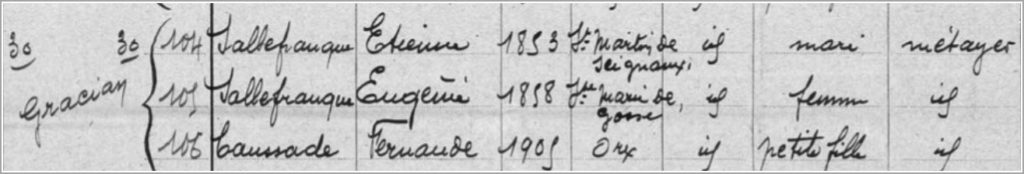 30 30 104 Sallefranque Etienne 1853 St Martin de Seignanx id mari métayer
Gracian 105 Sallefranque Eugénie 1858 Ste Marie de Gosse id femme id
106 Caussade Fernande 1905 Orx id petite fille id